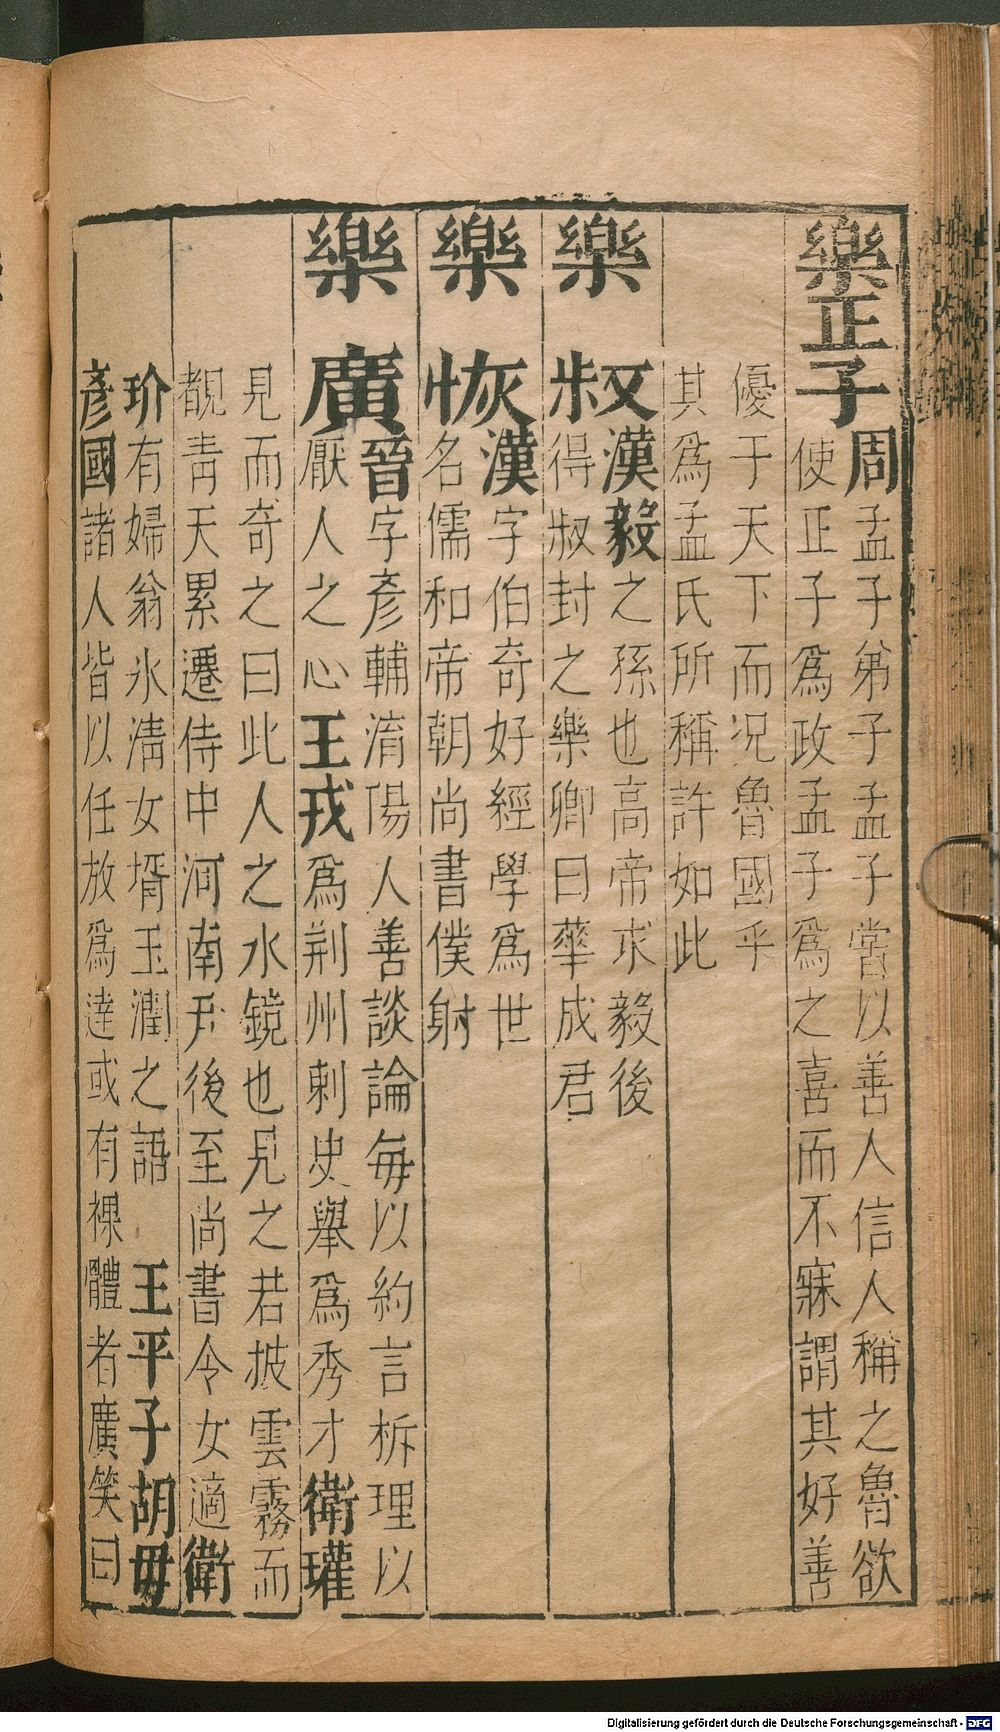 樂正子
周孟子弟子孟子嘗以善人信人稱之魯欲
使正子爲政孟子爲之喜而不寐謂其好善
優于天下而况魯國乎
其爲孟氏所稱許如此
樂叔
漢毅之孫也高帝求毅後
得叔封之樂卿曰華成君
樂恢
漢字伯奇好經學爲世
名儒和帝朝尚書僕射
樂廣
晉字彥輔淯陽人善談論每以約言柝理以
厭人之心王戎爲荆州刺史舉爲秀才衛瓘
見而奇之曰此人之水鏡也見之若披雲霧而
覩青天累遷侍中河南尹後至尚書令女適衛
玠有婦翁氷清女壻玉潤之語 王平子胡毋
彥國諸人皆以任放爲達或有裸體者廣笑曰
Digitalisierung gefördert durch die Deutsche Forschungsgemeinschaft - DFG